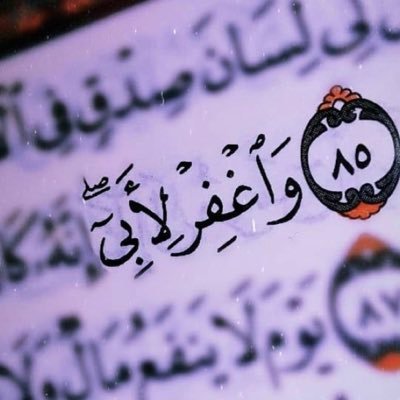 لِي لِسَانَ صِدْقٍ فِي
٨٥ وَٱغْفِرْ لِأَبِيٓ ۖ إِنَّهُۥ كَا
٨٧ يَوْمَ لَا يَنفَعُ مَالٌ وَلَا